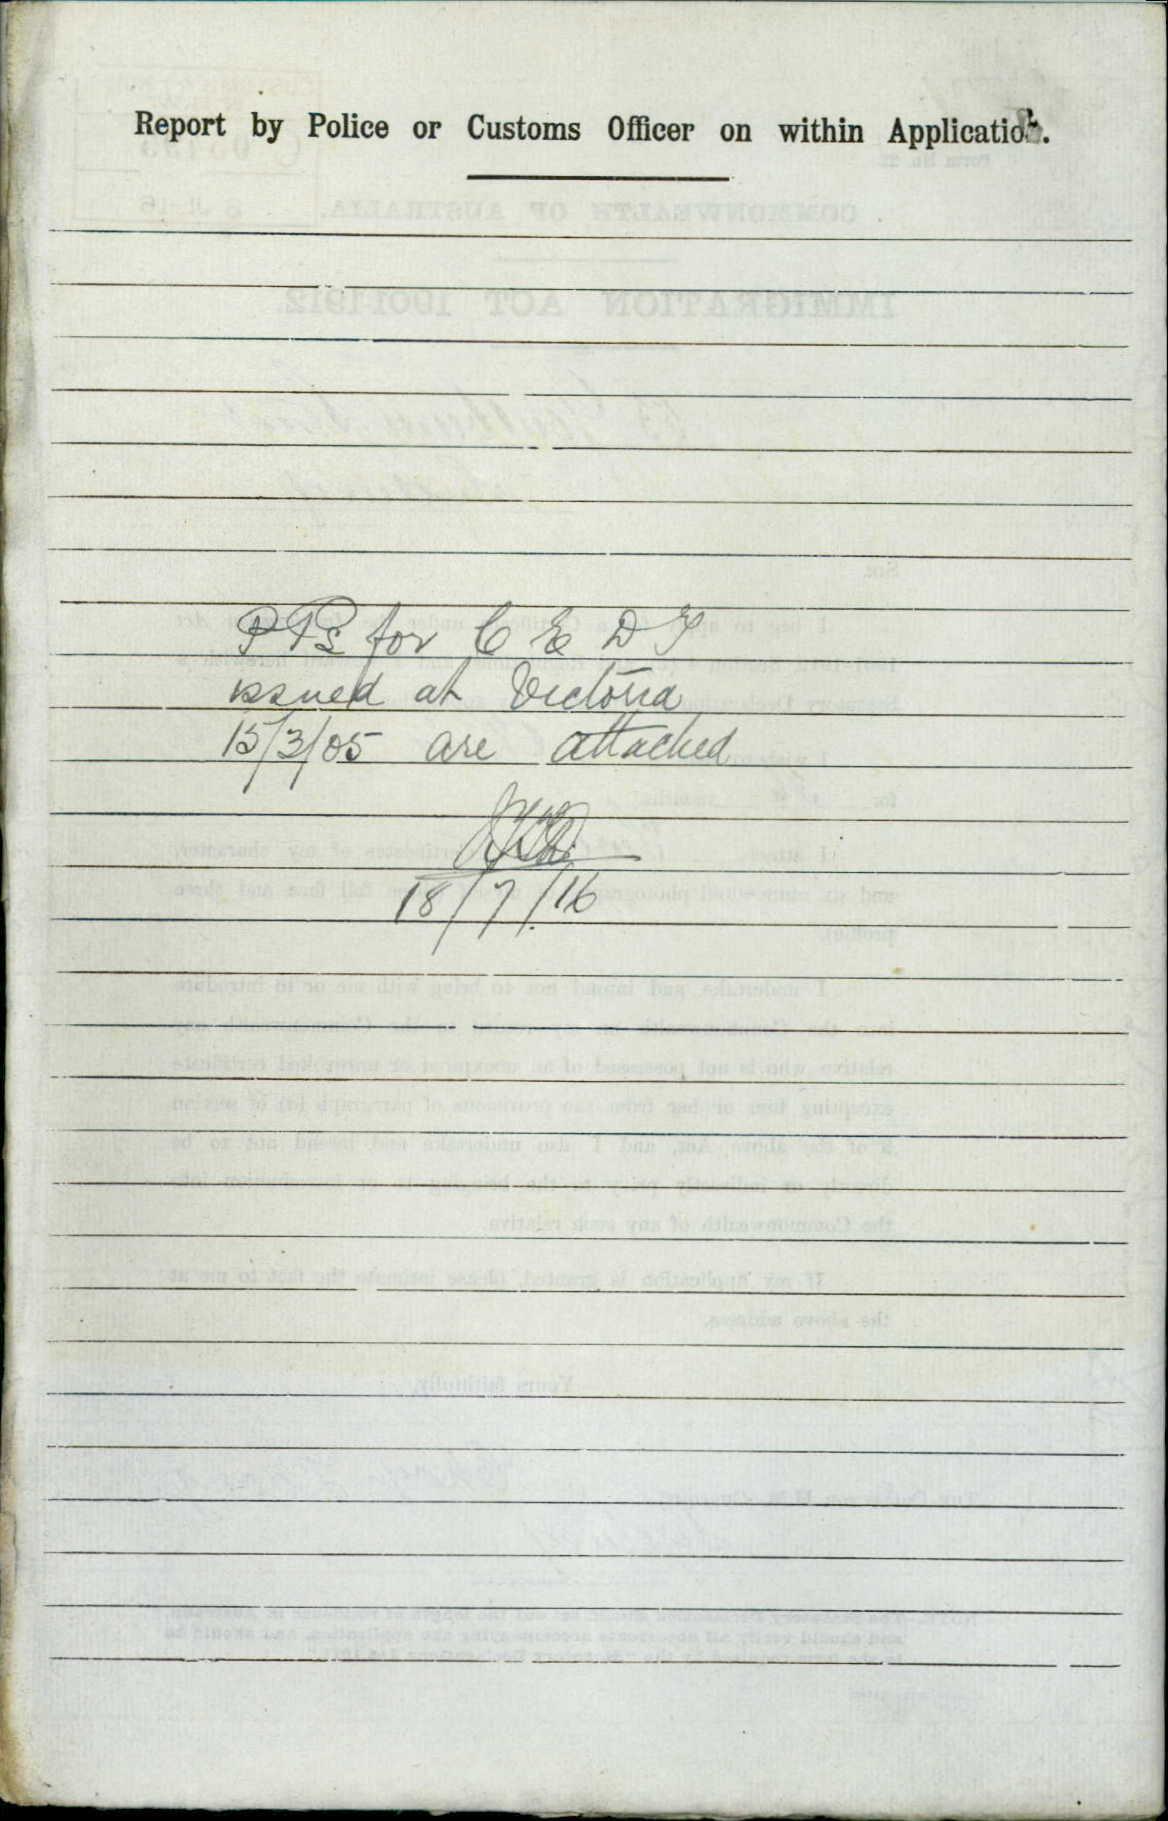 Report by Police or Customs Officer on within Application.
P Ps for C E D T
issued at Victoria
15/3/05 are attached
18/7/16